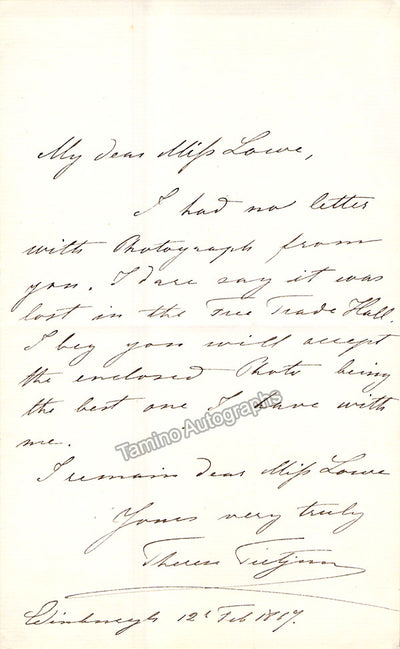 My dear Miss Lowe,
I had no letter
with Photograph from
you. I dare say it was
lost in the Free Trade Hall.
I beg you will accept
the enclosed Photo being
the best one I have with
me.
Tamino Autographs
I remain dear Miss Lowe
Yours very truly
Therese Tietjens
Edinburgh 12t Feb